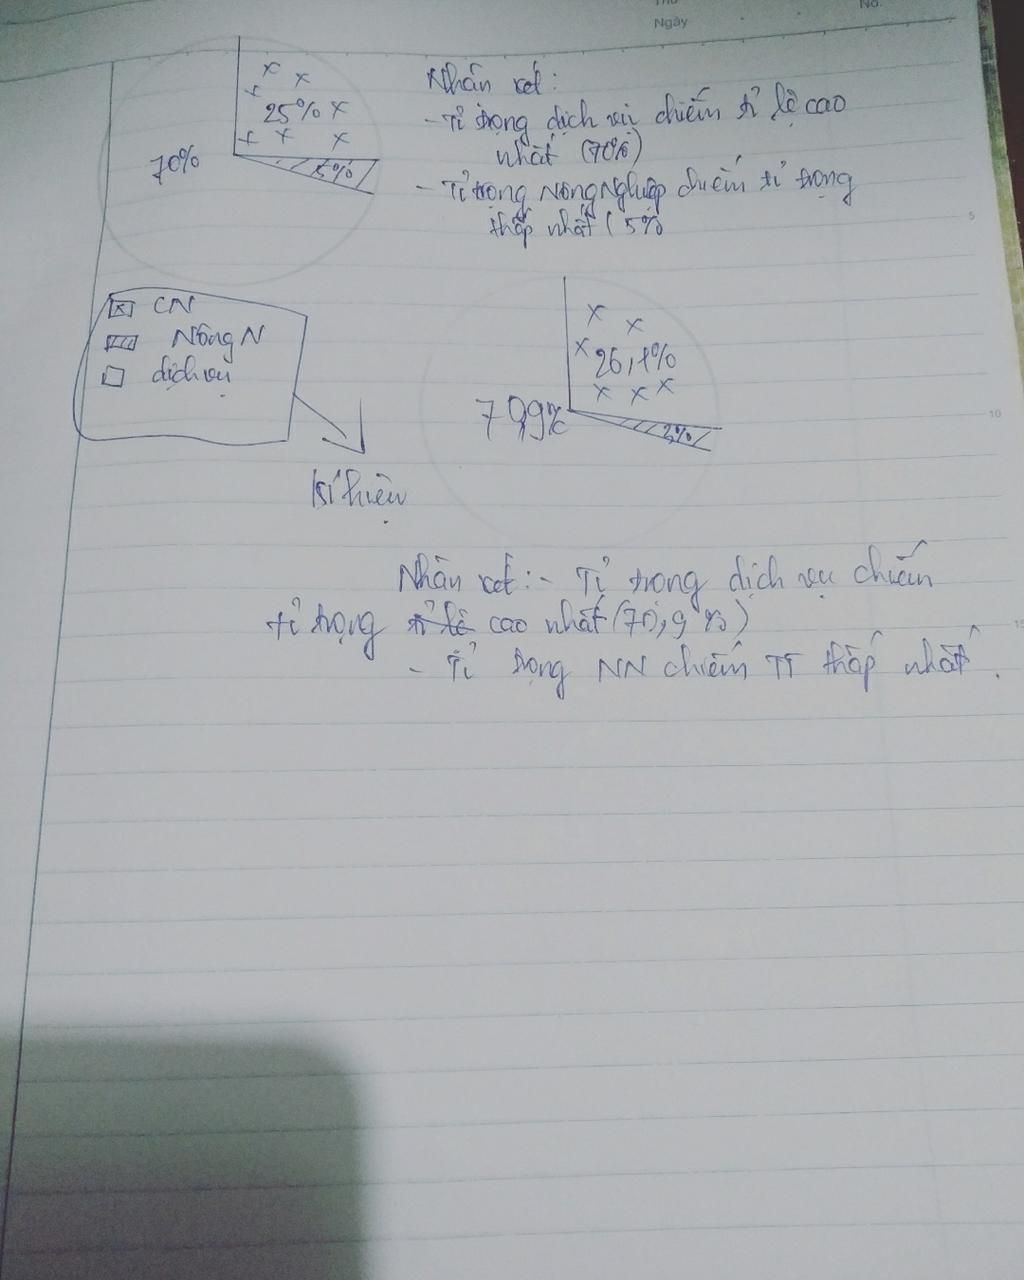 Thứ
Ngày
No.
25%
70%
5%
Nhấn xét:
- Tỉ trọng dịch vụ chiếm tỉ lệ cao
nhất (70%)
- Tỉ trọng Nông Nghiệp chiếm tỉ trọng
thấp nhất ( 5%
5
CN
Nông N
dịch vụ
kí hiệu
26,1%
70,9%
3%
10
Nhận xét: - Tỉ trong dịch vụ chiếm
tỉ trọng tỉ lệ cao nhất (70,9%)
15
- Tỉ trọng NN chiếm TT thấp nhất.